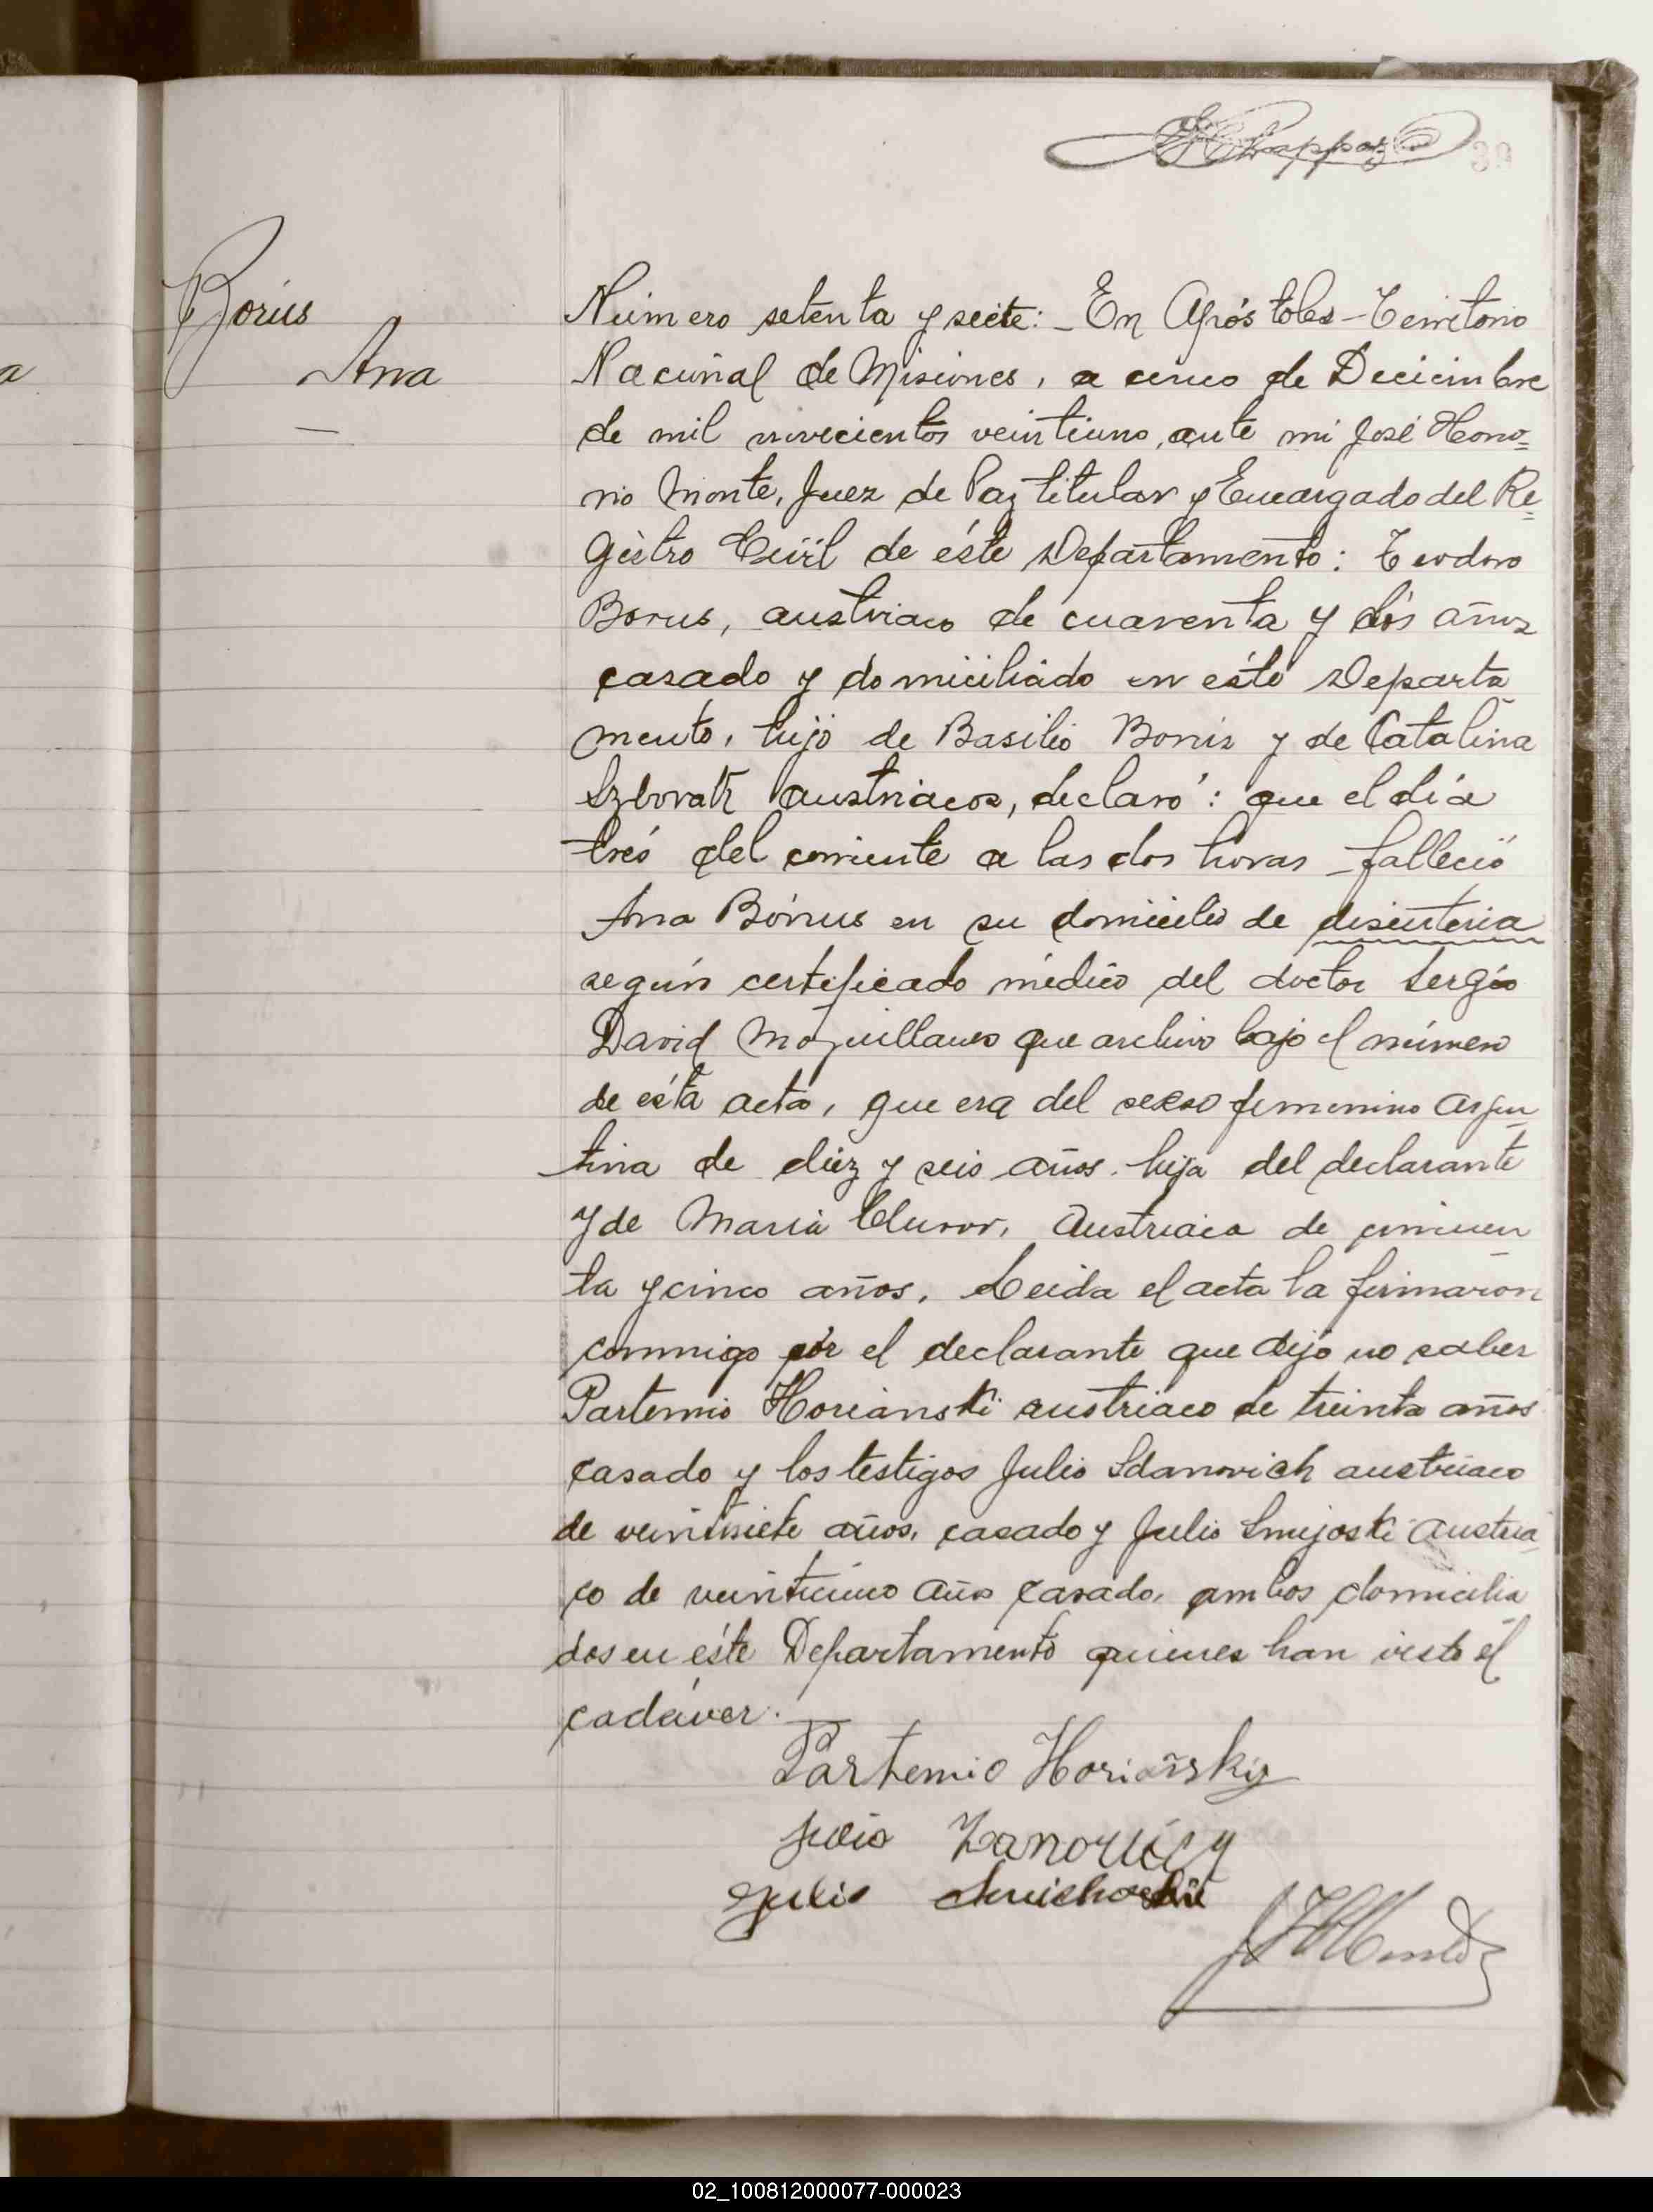 39
Borus
Ana
Número setenta y siete: _ En Apóstoles - Territorio
Nacional de Misiones, a cinco de Diciembre
de mil novecientos veintiuno, ante mi José Hono=
rio Monte, Juez de Paz titular y Encargado del Re=
gistro Civil de éste Departamento: Teodoro
Borus, austriaco de cuarenta y dós años
casado y domiciliado en éste Departa
mento, hijo de Basilio Borus y de Catalina
austriacos, declaró: que el día
trés del corriente a las dos horas _ falleció
Ana Bórus en su domicilio de disenteria
según certificado médico del doctor Sergio
David que archivo bajo el número
de ésta acta, que era del sexso femenino argen
tina de diez y seis años. hija del declarante
y de Maria Austriaca de cincuen
ta y cinco años. Leida el acta la firmaron
conmigo pór el declarante que dijo no saber
Partemio Horianski austriaco de treinta años
casado y los testigos Julio Sdanovich austriaco
de veintisiete años, casado y Julio Smijoski austria
co de veinticinco años casado, ambos domicilia
dos en éste Departamento quienes han visto el
cadáver. _
Partemio Horianskiy
Julio
Julio
02_100812000077-000023